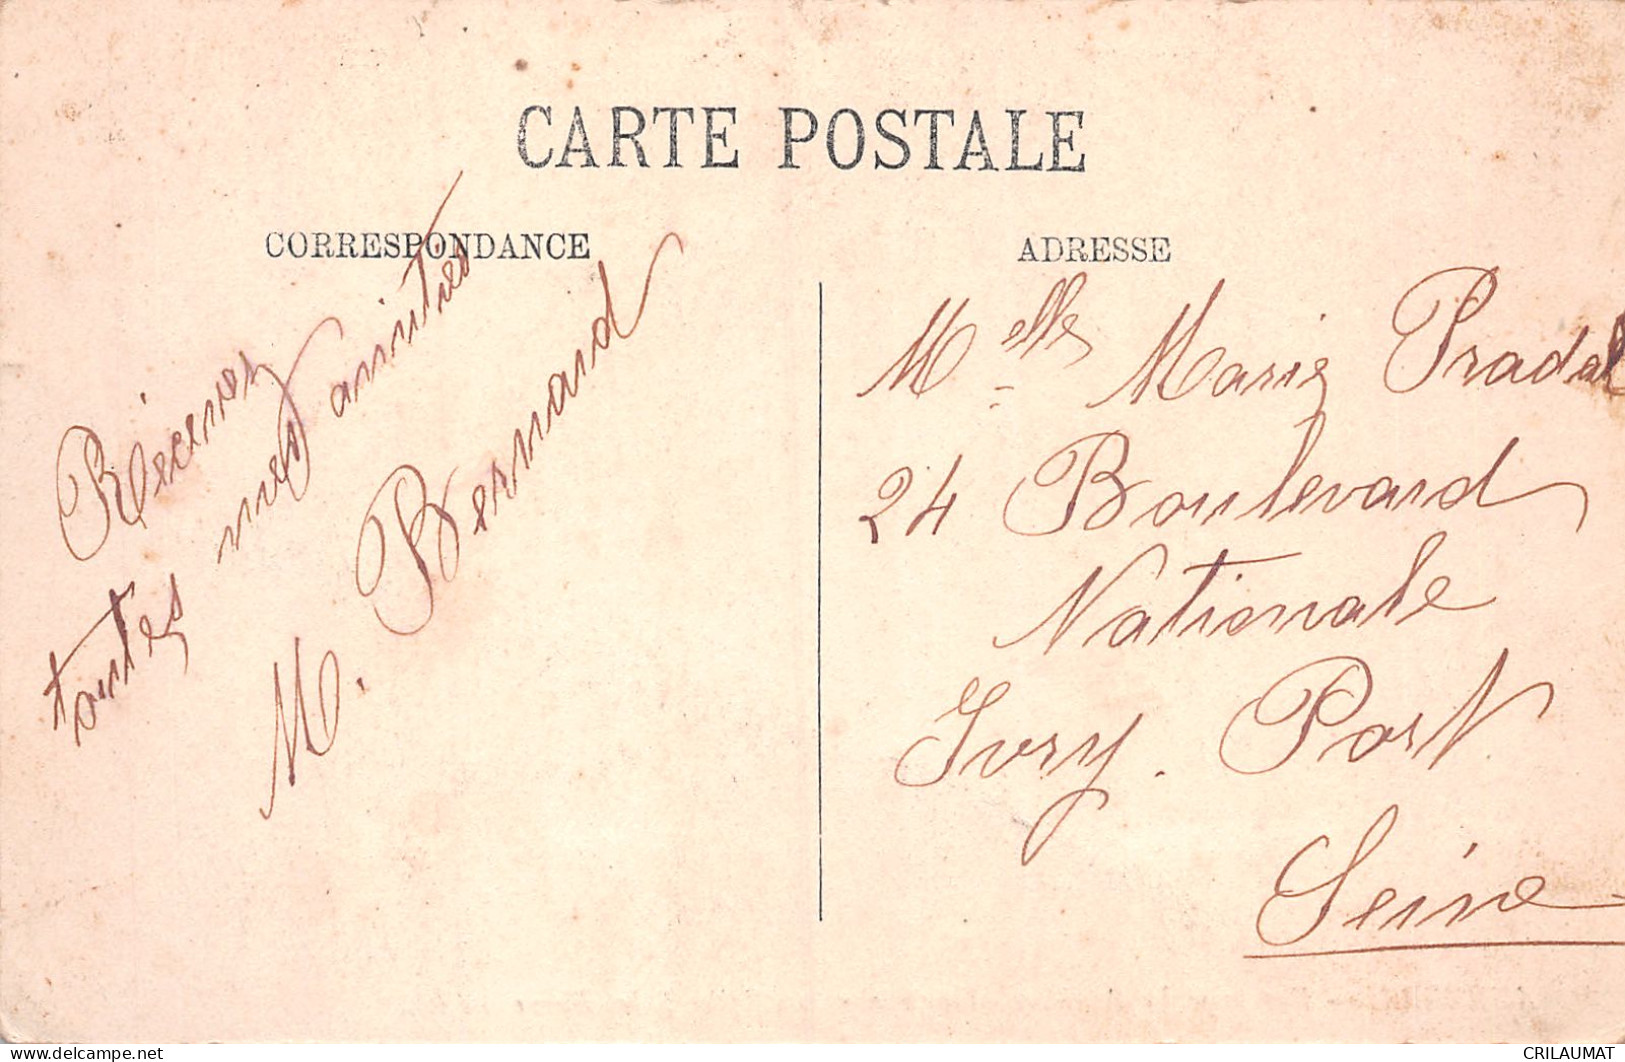 CARTE POSTALE
CORRESPONDANCE
Récevez
toutes mes amitiés
M. Bernard
ADRESSE
Melle Marie Pradal
24 Boulevard
Nationale
Ivry. Port
Seine
delcampe.net
CRILAUMAT